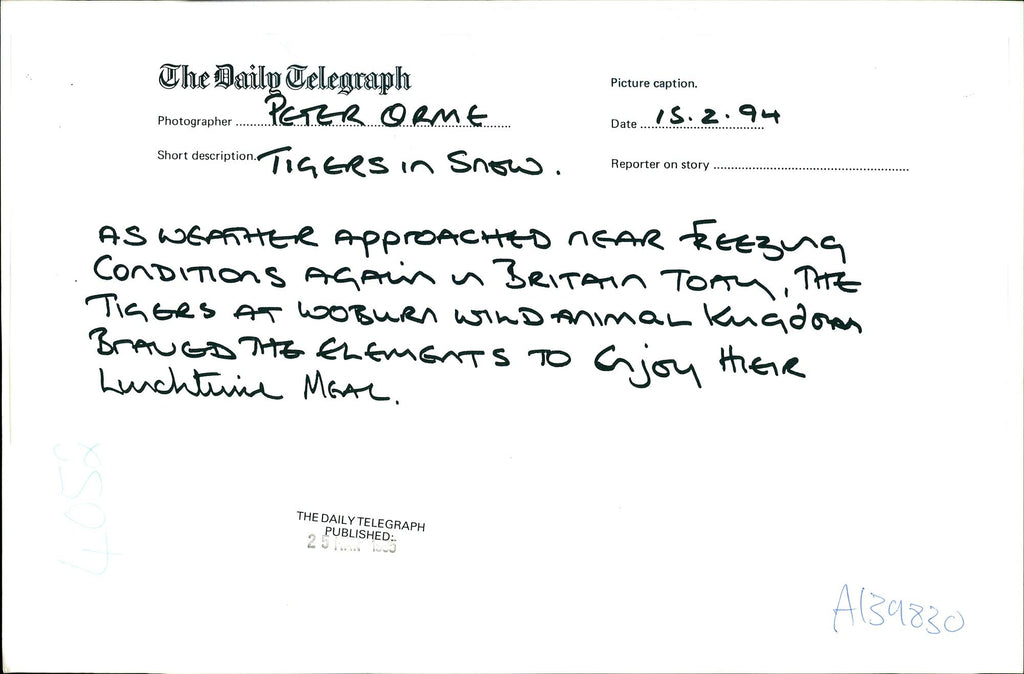 The Daily Telegraph
Picture caption.
Photographer PETER ORME
Date 15.2.94
Short description. TIGERS in SNOW.
Reporter on story
AS WEATHER APPROACHED NEAR FREEZING
CONDITIONS AGAIN IN BRITAIN TODAY, THE
TIGERS AT WOBURN WILD ANIMAL KINGDOM
BRAVED THE ELEMENTS TO ENJOY THEIR
Lunchtime MEAL.
THE DAILY TELEGRAPH
PUBLISHED:
25
A139830